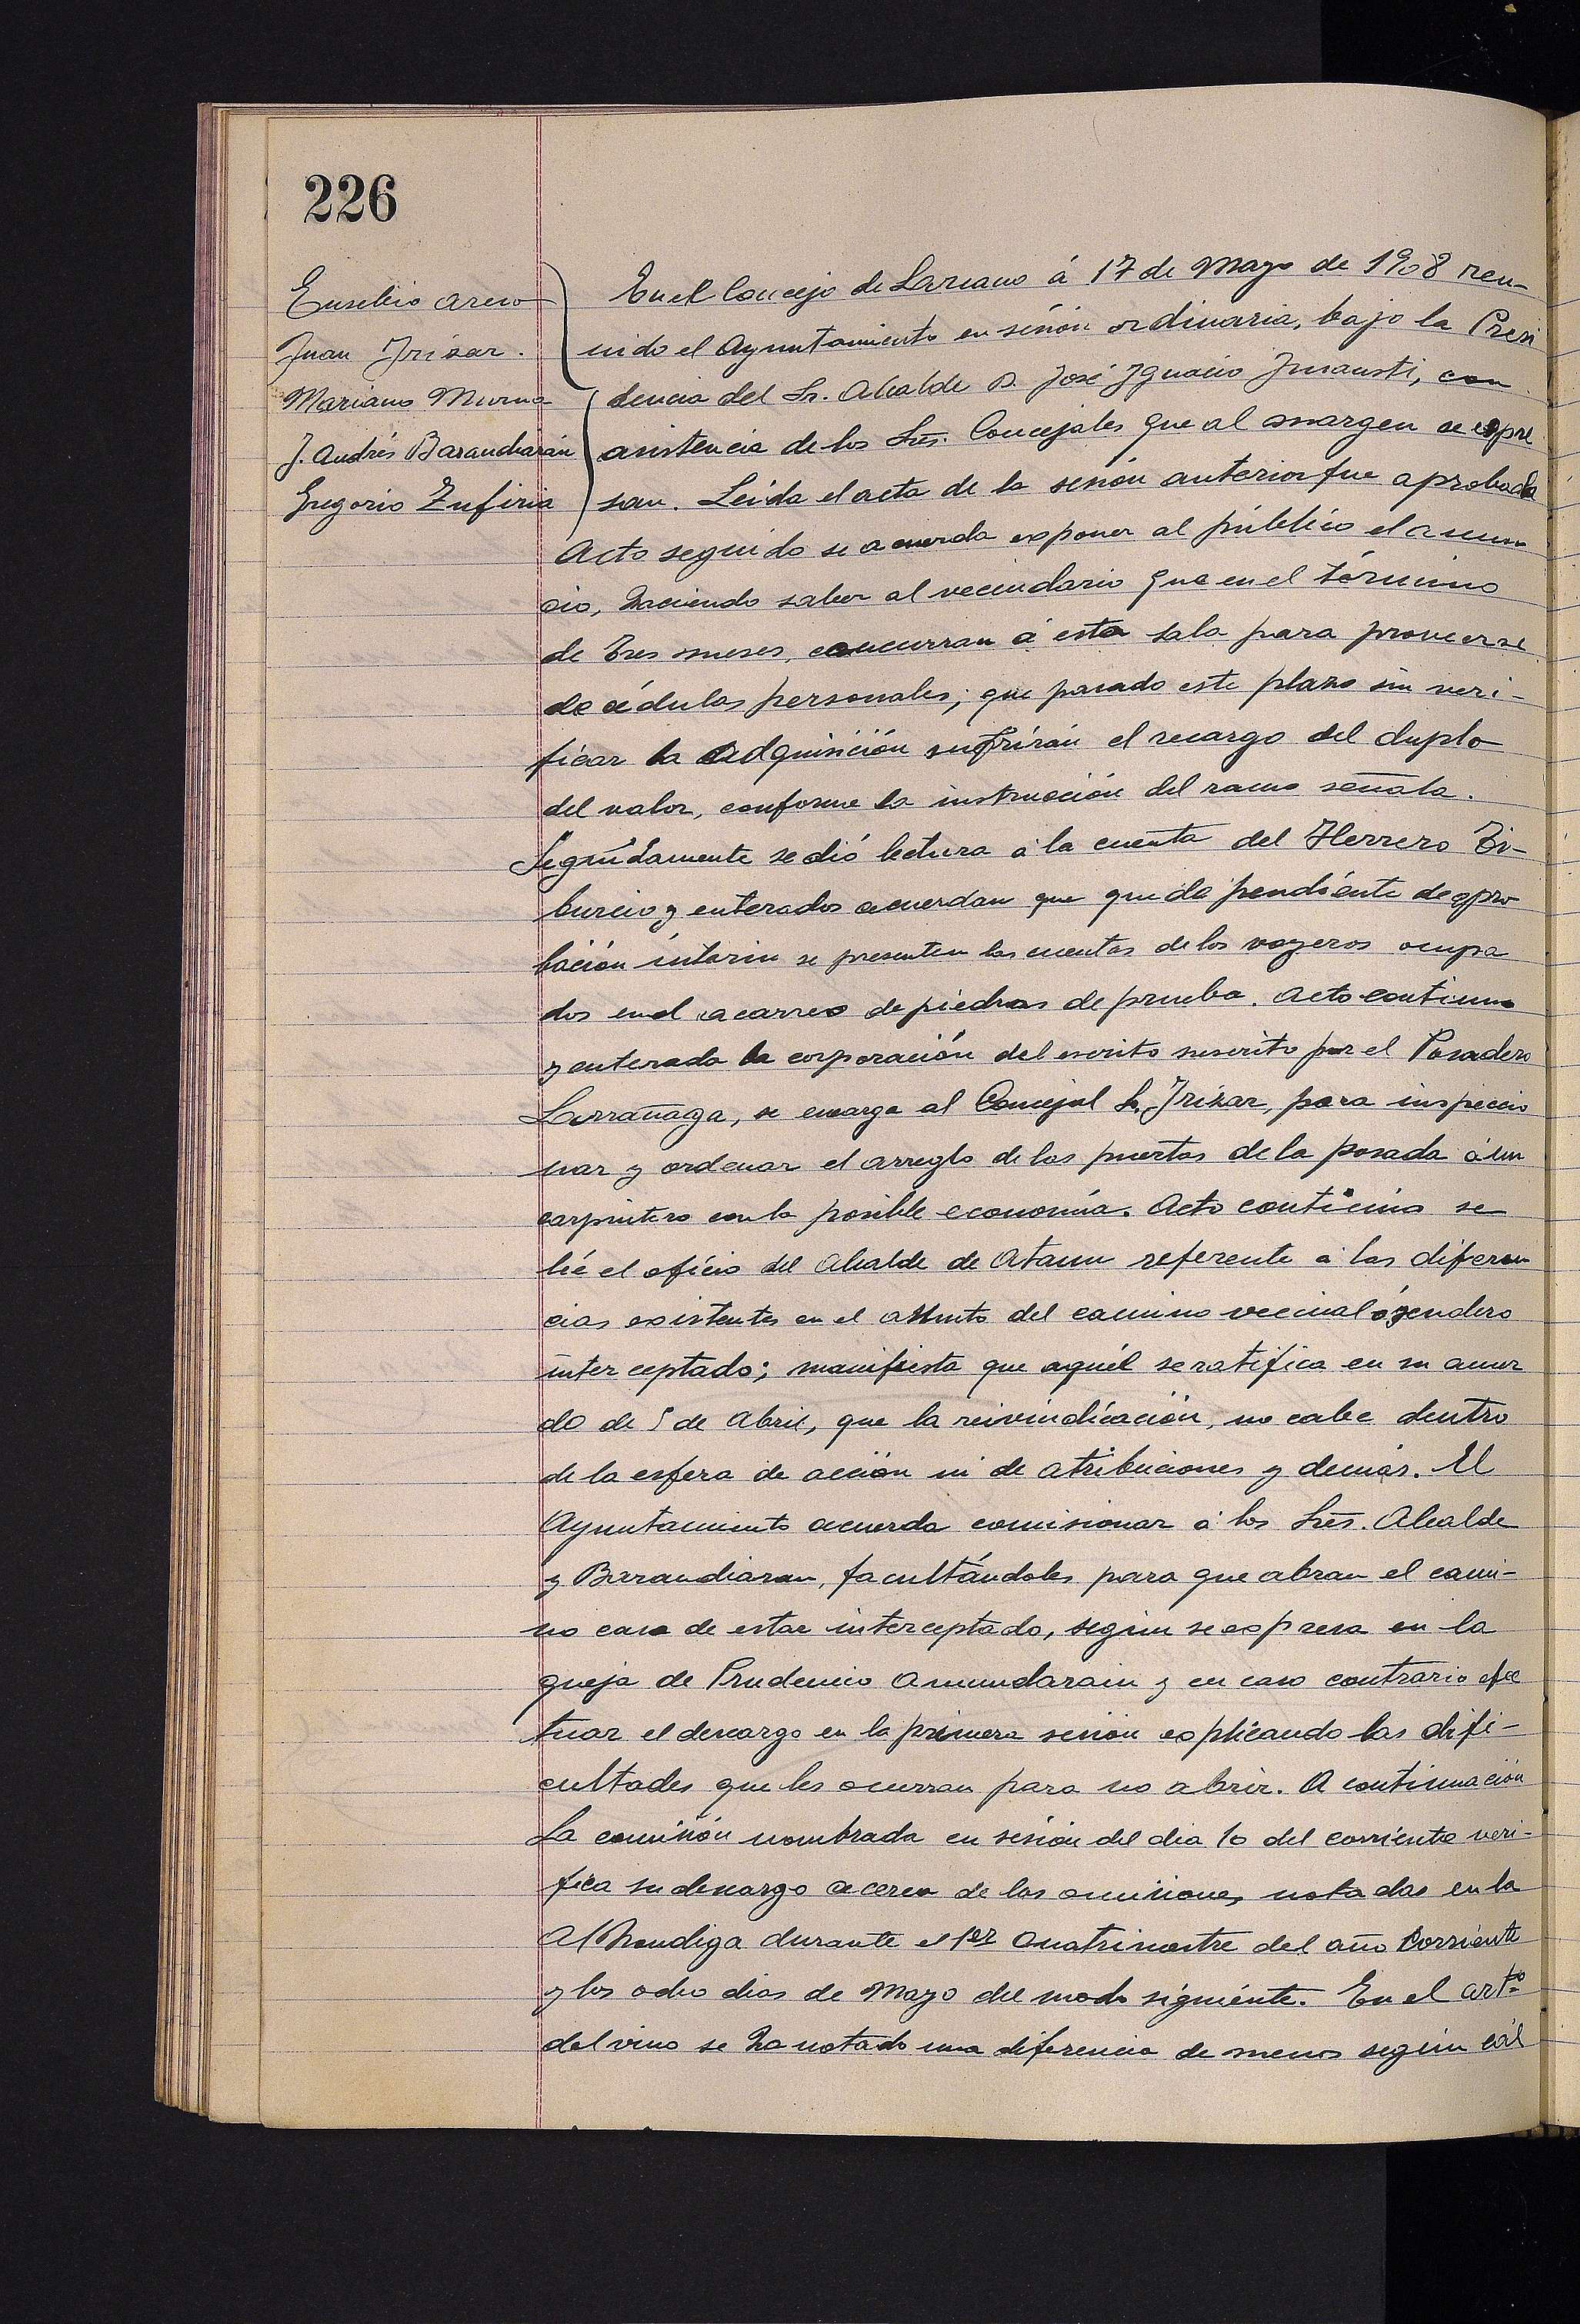 226
Eusebio Areso
Juan Irizar.
Mariano Murua
J. Andrés Barandiarán
Gregorio Zufiria
En el Concejo de Lazcano á 17 de Mayo de 1908 reu-
nido el Ayuntamiento en sesión ordinaria, bajo la Presi
dencia del Sr. Alcalde D. José Ignacio Insausti, con
asistencia de los Sres. Concejales que al margen se expre
san. Leida el acta de la sesión anterior fue aprobada
Acto seguido se acuerda exponer al público el anun
cio, haciendo saber al vecindario que en el término
de tres meses, concurran á esta sala para proveerse
de cédulas personales; que pasado este plazo sin veri-
ficar la adquisición sufrirán el recargo del duplo
del valor, conforme la instrucción del ramo señala.
Seguidamente se dió lectura á la cuenta del Herrero Ti-
burcio y enterados acuerdan que quede pendiente de apro
bación interin se presenten las cuentas de los voyeros ocupa
dos en el acarreo de piedras de prueba. Acto continuo
y enterada la corporación del escrito suscrito por el Posadero
Larrañaga, se encarga al Concejal Sr. Irizar, para inspeccio
nar y ordenar el arreglo de las puertas de la posada á un
carpintero con la posible economía. Acto continuo se
lée el oficio del Alcalde de Ataun referente á las diferen
cias existentes en el asunto del camino vecinal ó sendero
interceptado; manifiesta que aquél se ratifica en su acuer
do de 5 de Abril, que la reivindicación, no cabe dentro
de la esfera de acción ni de atribuciones y demás. El
Ayuntamiento acuerda comisionar á los Sres. Alcalde
y Barandiaran, facultándoles para que abran el cami-
no caso de estar interceptado, según se expresa en la
queja de Prudencio Amundarain y en caso contrario efec
tuar el descargo en la primera sesión explicando las difi-
cultades que les ocurran para no abrir. A continuación
La comisión nombrada en sesión del dia 10 del corriente veri-
fica su descargo acerca de las omisiones notadas en la
Alhondiga durante el 1er cuatrimestre del año corriente
y los ocho dias de Mayo del modo siguiente. En el artº
del vino se ha notado una diferencia de menos según cál